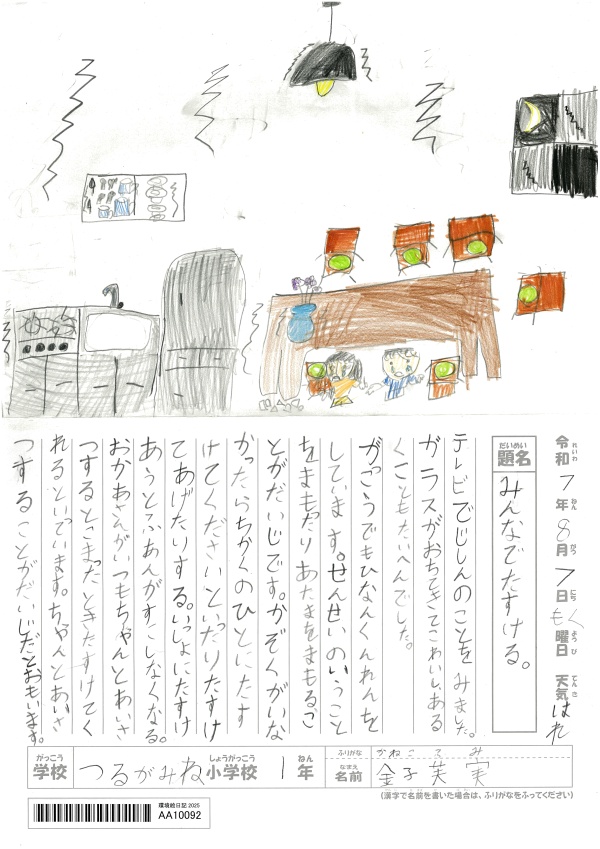 令和7年8月7日もく曜日 天気はれ
れいわ ねん がつ にち ようび てんき
だいめい
題名 みんなでたすける。
テレビでじしんのことをみました。
ガラスがおちてきてこわいし、ある
くこともたいへんでした。
がっこうでもひなんくんれんを
しています。せんせいのいうこと
をまもったりあたまをまもるこ
とがだいじです。かぞくがいな
かったらちかくのひとにたす
けてくださいといったりたすけ
てあげたりする。いっしょにたすけ
あうとふあんがすこしなくなる。
おかあさんがいつもちゃんとあいさ
つするとこまったときたすけてく
れるといています。ちゃんとあいさ
つすることがだいじだとおもいます。
がっこう しょうがっこう ねん ふりがな かねこ み
学校 つるがみね小学校 1年 なまえ 名前 金子芙実
(漢字で名前を書いた場合は、ふりがなをふってください)
環境絵日記2025
AA10092